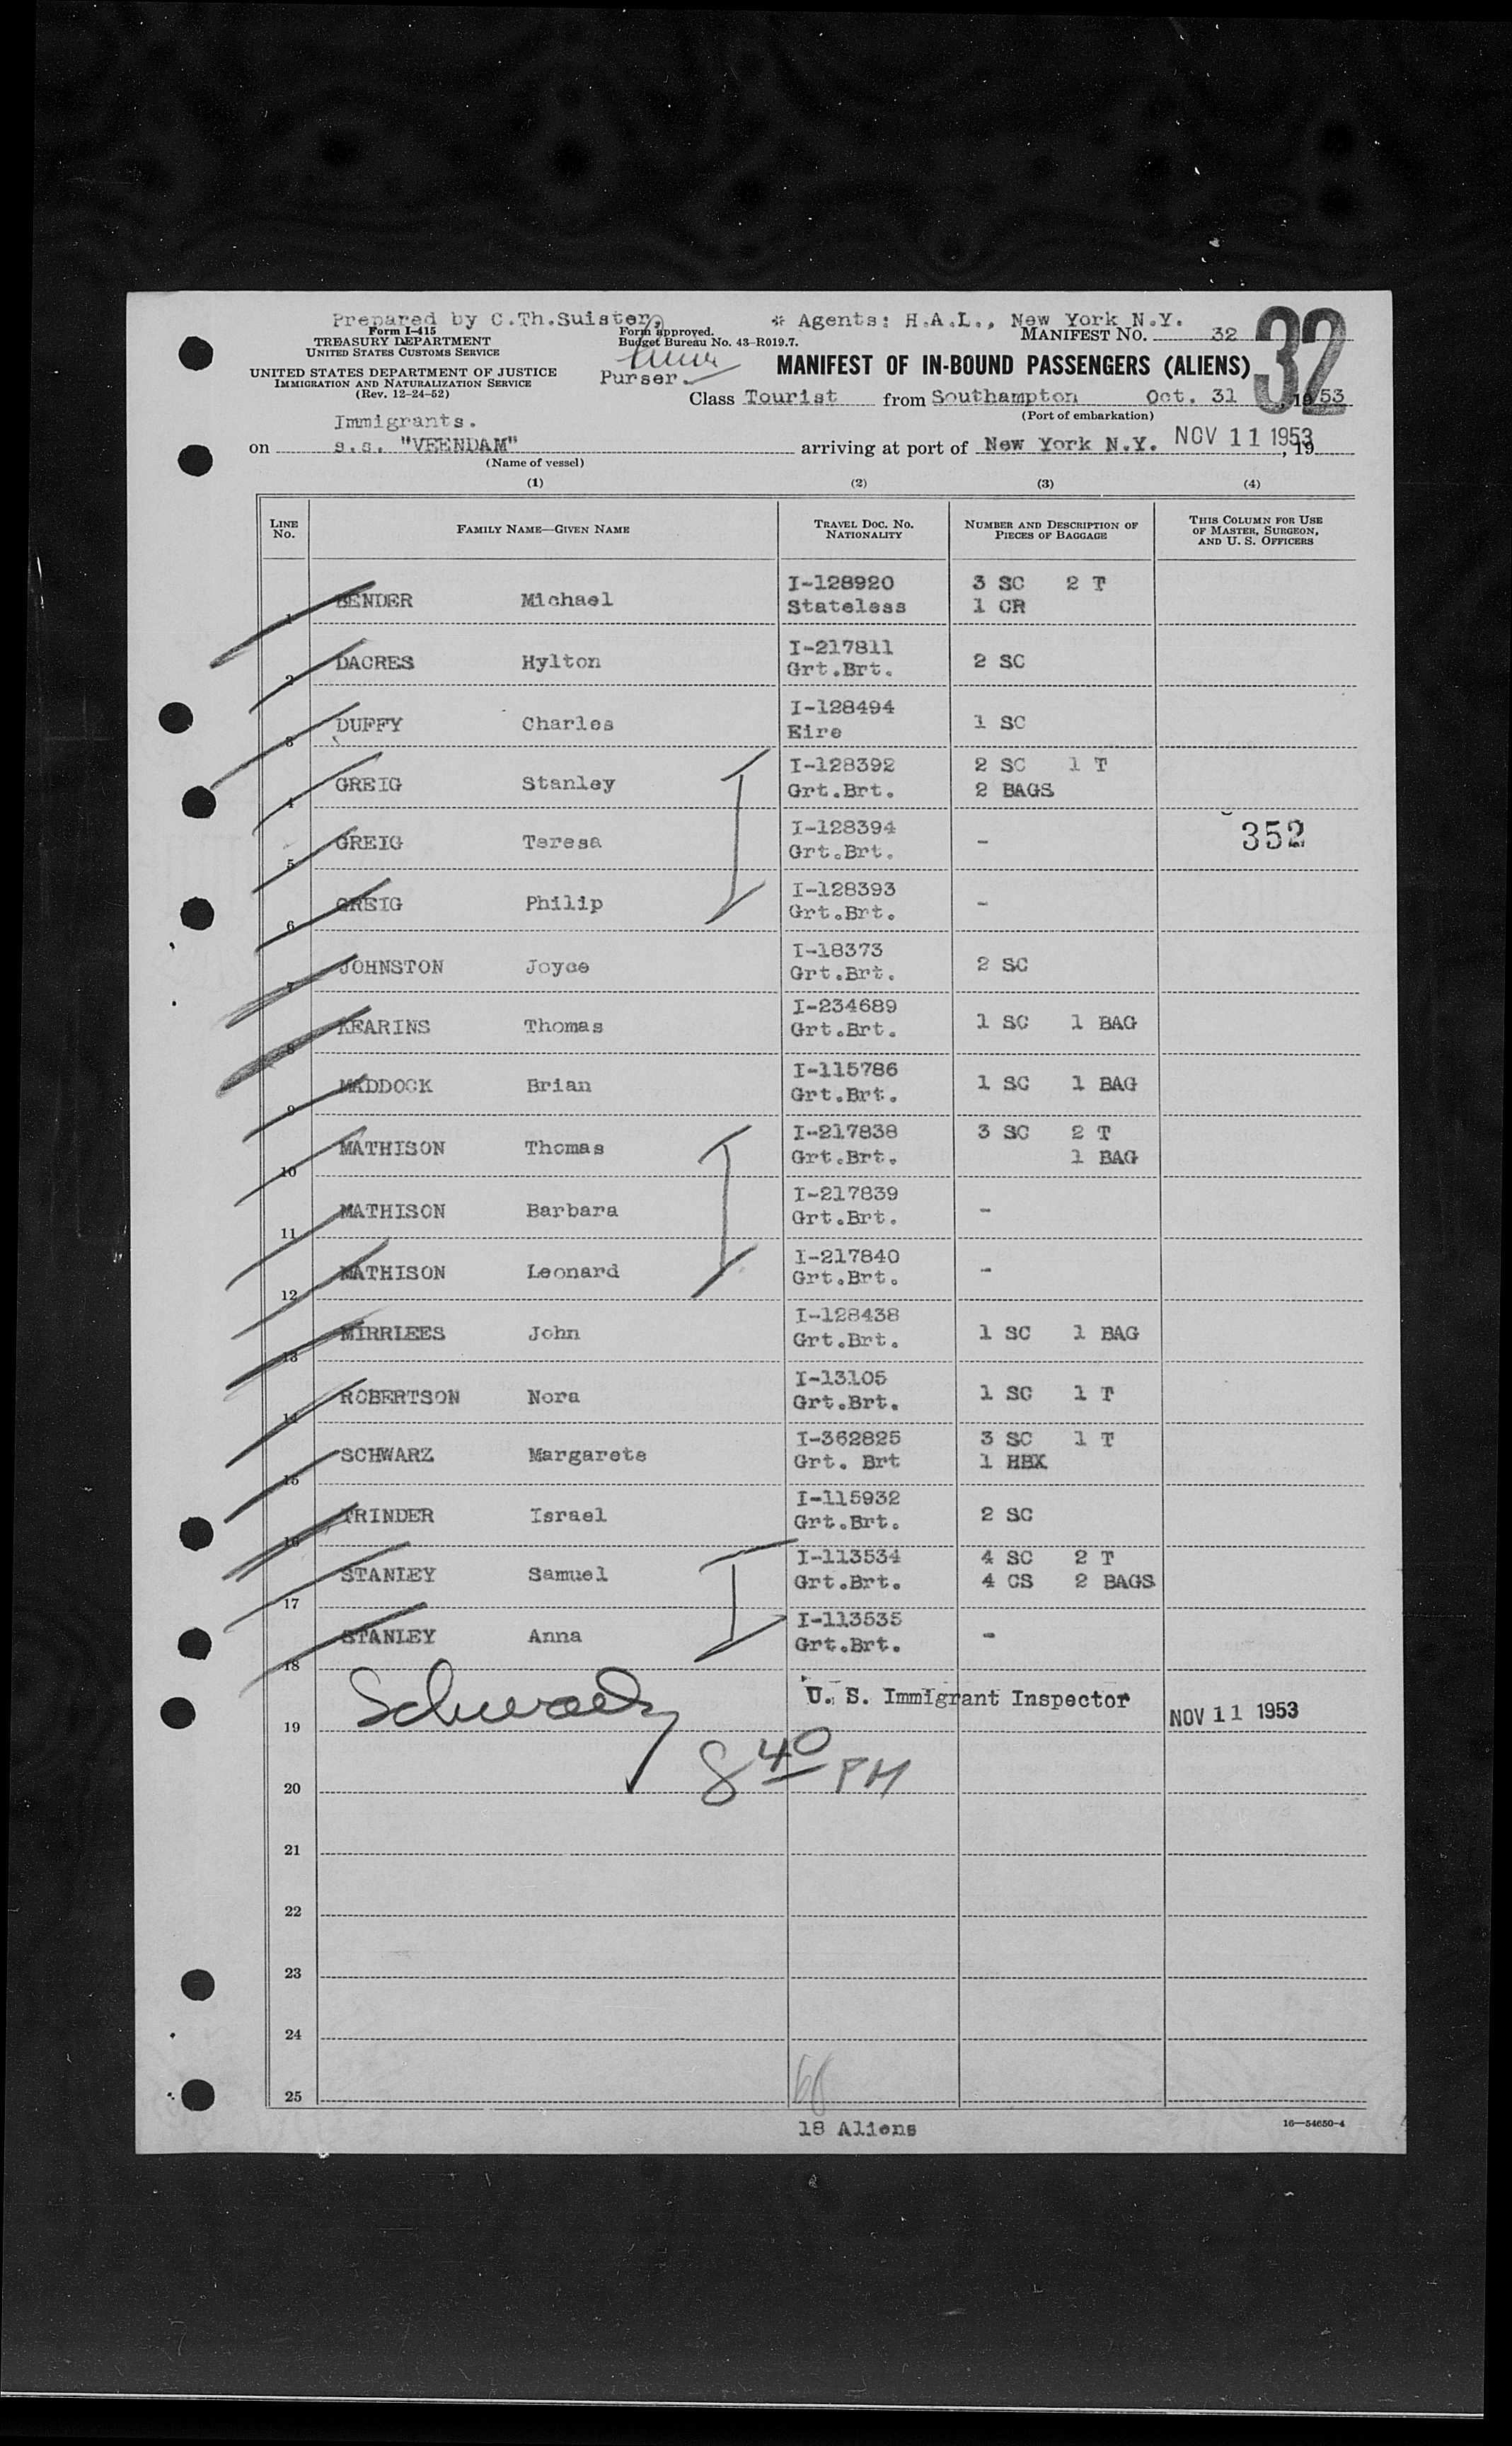 Prepared by C.Th.Suister, * Agents: H.A.L., New York N.Y.
Form I-415 Form approved. MANIFEST NO. 32
TREASURY DEPARTMENT Budget Bureau No. 43-R019.7.
UNITED STATES CUSTOMS SERVICE
32
UNITED STATES DEPARTMENT OF JUSTICE MANIFEST OF IN-BOUND PASSENGERS (ALIENS)
IMMIGRATION AND NATURALIZATION SERVICE Purser.
(Rev. 12-24-52)
Class Tourist from Southampton Oct. 31, 1953
(Port of embarkation)
Immigrants.
on s.s. "VEENDAM" arriving at port of New York N.Y. NOV 11 1953, 19
(Name of vessel)
(1) (2) (3) (4)
LINE No. FAMILY NAME—GIVEN NAME TRAVEL DOC. NO. NATIONALITY NUMBER AND DESCRIPTION OF PIECES OF BAGGAGE THIS COLUMN FOR USE OF MASTER, SURGEON, AND U. S. OFFICERS
1 BENDER Michael I-128920 Stateless 3 SC 2 T 1 CR
2 DACRES Hylton I-217811 Grt.Brt. 2 SC
3 DUFFY Charles I-128494 Eire 1 SC
4 GREIG Stanley I-128392 Grt.Brt. 2 SC 1 T 2 BAGS
5 GREIG Teresa I-128394 Grt.Brt. - 352
6 GREIG Philip I-128393 Grt.Brt. -
7 JOHNSTON Joyce I-18373 Grt.Brt. 2 SC
8 KEARINS Thomas I-234689 Grt.Brt. 1 SC 1 BAG
9 MADDOCK Brian I-115786 Grt.Brt. 1 SC 1 BAG
10 MATHISON Thomas I-217838 Grt.Brt. 3 SC 2 T 1 BAG
11 MATHISON Barbara I-217839 Grt.Brt. -
12 MATHISON Leonard I-217840 Grt.Brt. -
13 MIRRLEES John I-128438 Grt.Brt. 1 SC 1 BAG
14 ROBERTSON Nora I-13105 Grt.Brt. 1 SC 1 T
15 SCHWARZ Margarete I-362825 Grt. Brt 3 SC 1 T 1 HBX
16 TRINDER Israel I-115932 Grt.Brt. 2 SC
17 STANLEY Samuel I-113534 Grt.Brt. 4 SC 2 T 4 CS 2 BAGS
18 STANLEY Anna I-113535 Grt.Brt. -
19 U. S. Immigrant Inspector NOV 11 1953
20 8 40 PM
21
22
23
24
25
18 Aliens 16—54650-4